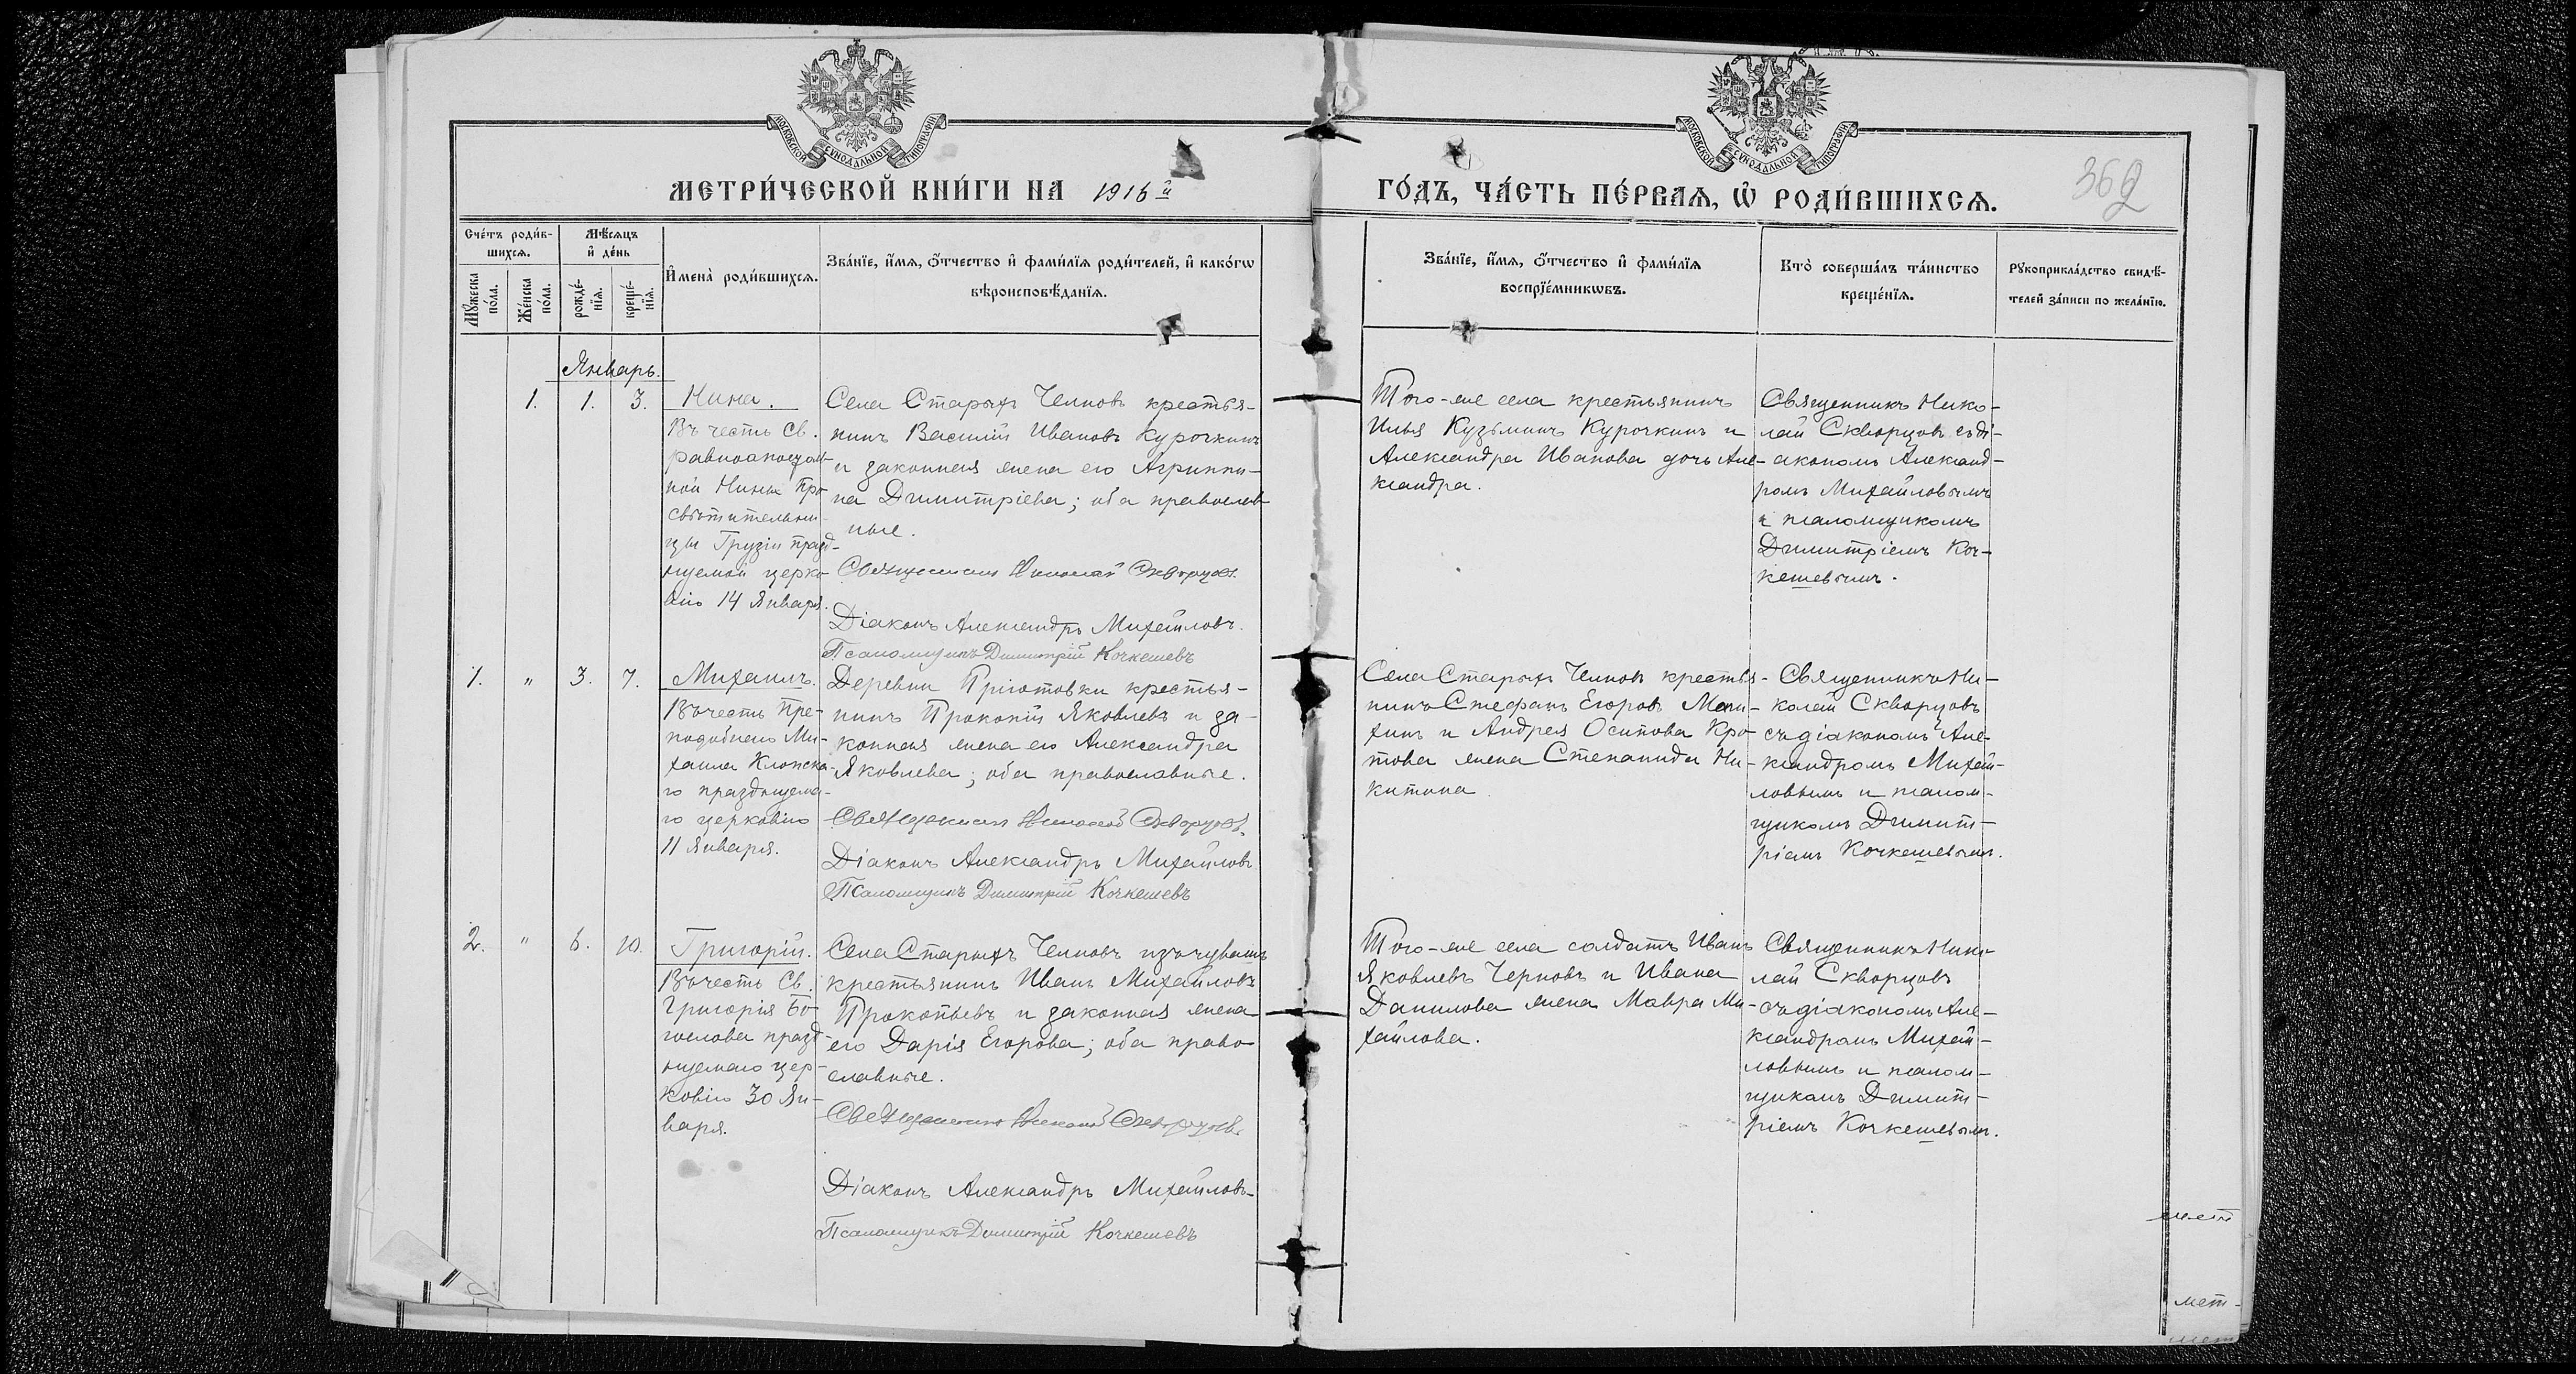 МОСКОВСКОЙ СУНОДАЛЬНОЙ ТИПОГРАФІИ
МОСКОВСКОЙ СУНОДАЛЬНОЙ ТИПОГРАФІИ
МЕТРИ́ЧЕСКОЙ КНИ́ГИ НА 1916й ГО́ДЪ, ЧА́СТЬ ПЕ́РВАѦ, Ѡ҆ РОДИ́ВШИХСѦ.
362
Сче́тъ роди́в-
шихсѧ.
Мꙋ́жеска
по́ла.
Же́нска
по́ла.
Мѣ́сѧцъ
и҆ де́нь
рожде́-
нїѧ.
креще́-
нїѧ.
И҆мена̀ роди́вшихсѧ.
Зва́нїе, и҆́мѧ, ѻ҆́тчество и҆ фами́лїѧ роди́телей, и҆ како́гѡ
вѣроисповѣ́данїѧ.
Зва́нїе, и҆́мѧ, ѻ҆́тчество и҆ фами́лїѧ
воспрїе́мникѡвъ.
Кто̀ соверша́лъ та́инство
креще́нїѧ.
Рꙋкоприкла́дство свидѣ́-
телей за́писи по жела́нїю.
Январь.
1. 1. 3.
Нина.
Въ честь Св.
равноапостоль-
ной Нины про-
свѣтительни-
цы Грузіи празд-
нуемой церко-
вію 14 Января.
Села Старыхъ Челновъ крестья-
нинъ Василій Ивановъ Курочкинъ
и законная жена его Агриппи-
на Димитріева; оба православ-
ные.
Священникъ Николай Скворцовъ.
Діаконъ Александръ Михайловъ.
Псаломщикъ Димитрій Кочкешевъ
Того-же села крестьянинъ
Илья Кузьминъ Курочкинъ и
Александра Иванова дочь Але-
ксандра.
Священникъ Нико-
лай Скворцовъ съ ді-
акономъ Александ-
ромъ Михайловымъ
и псаломщикомъ
Димитріемъ Коч-
кешевымъ.
1. " 3. 7.
Михаилъ.
Въ честь Пре-
подобнаго Ми-
хаила Клопска-
го празднуема-
го церковію
11 Января.
Деревни крестья-
нинъ Прокопій Яковлевъ и за-
конная жена его Александра
Яковлева; оба православные.
Священникъ Николай Скворцовъ.
Діаконъ Александръ Михайловъ
Псаломщикъ Димитрій Кочкешевъ
Села Старыхъ Челновъ крестья-
нинъ Стефанъ Егоровъ
и Андрея Осипова Кро-
това жена Степанида Ни-
китина.
Священникъ Ни-
колай Скворцовъ
съ діакономъ Але-
ксандромъ Михай-
ловымъ и псалом-
щикомъ Димит-
ріемъ Кочкешевымъ.
2. " 6. 10.
Григорій.
Въ честь Св.
Григорія Бо-
гослова празд-
нуемаго цер-
ковію 30 Ян-
варя.
Села Старыхъ Челновъ изъ чувашъ
крестьянинъ Иванъ Михайловъ
Прокопьевъ и законная жена
его Дарія Егорова; оба право-
славные.
Священникъ Николай Скворцовъ.
Діаконъ Александръ Михайловъ
Псаломщикъ Димитрій Кочкешевъ
Того-же села солдатъ Иванъ
Яковлевъ Черновъ и Ивана
Данилова жена Мавра Ми-
хайлова.
Священникъ Нико-
лай Скворцовъ
съ діакономъ Але-
ксандромъ Михай-
ловымъ и псалом-
щикомъ Димит-
ріемъ Кочкешевымъ.